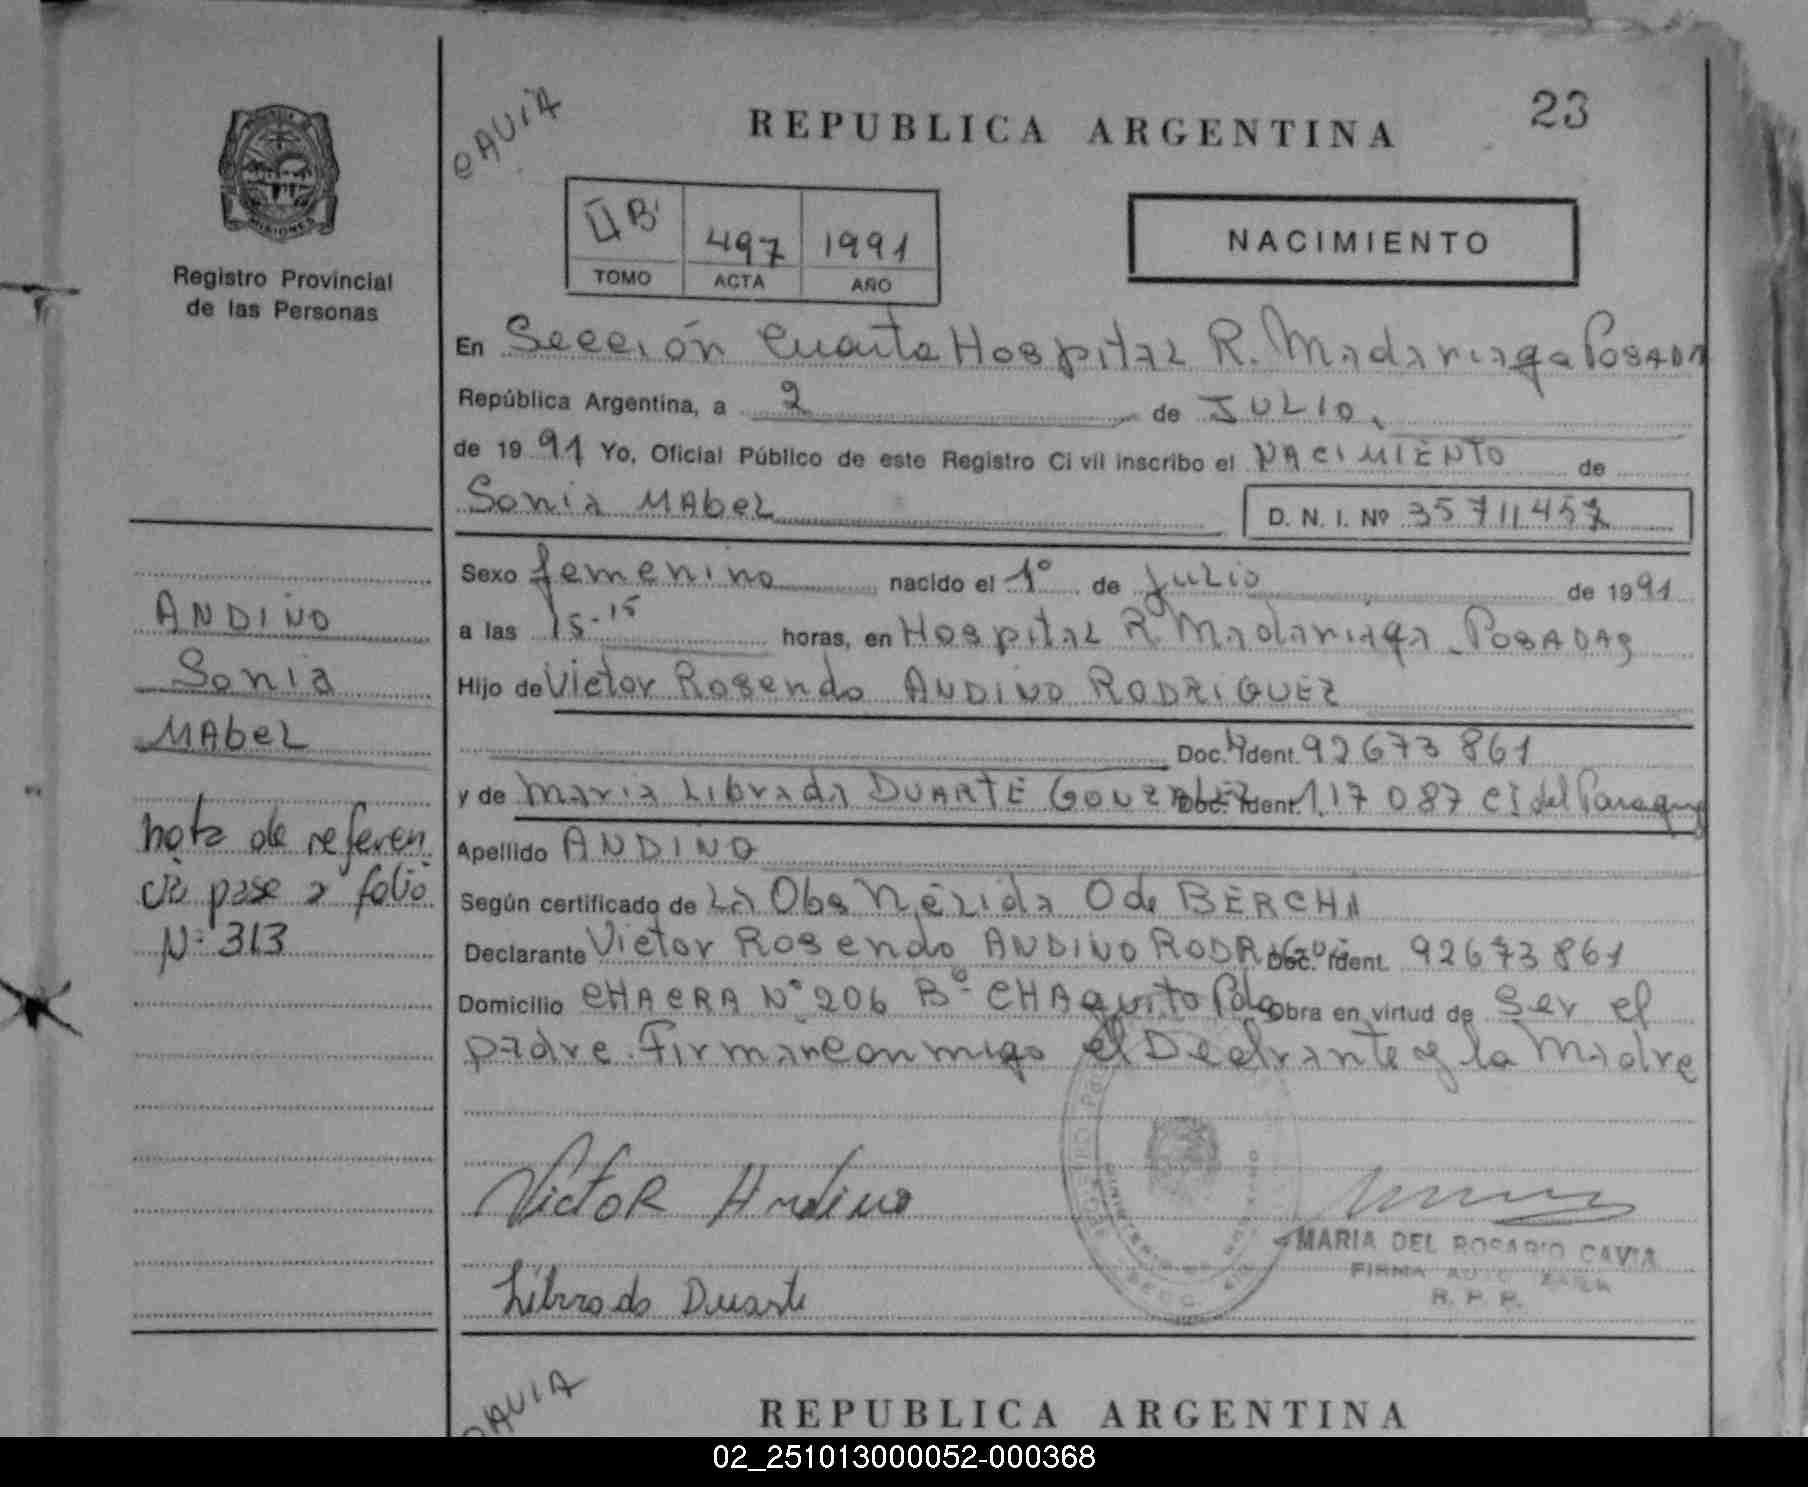 CAVIA
REPUBLICA ARGENTINA
23
MISIONES
Registro Provincial
de las Personas
II B' 497 1991
TOMO ACTA AÑO
NACIMIENTO
En Sección Cuarta Hospital R. Madariaga POSADA
República Argentina, a 2 de JULIO.
de 1991 Yo, Oficial Público de este Registro Civil inscribo el NACIMIENTO de
Sonia MAbeL D. N. I. Nº 35711457
Sexo femenino nacido el 1º de Julio de 1991
a las 15-15 horas, en Hospital R Madariaga POSADAS
Hijo de Victor Rosendo ANDINO RODRIGUEZ
Doc. Ident. 92673861
y de Maria Librada DUARTE GONZALEZ Doc. Ident. 1.117 087 CI del Paraguay
Apellido ANDINO
Según certificado de La Obs Nélida O de BERCHI
Declarante Victor Rosendo ANDINO RODRIG Doc. Ident. 92673861
Domicilio CHACRA Nº 206 Bº CHAquito Pdas Obra en virtud de Ser el
padre. Firman conmigo el Declrante y la Madre
ANDINO
Sonia
MAbeL
nota de referen
cia pase a folio
Nº 313
Victor Andino
Librada Duarte
MARIA DEL ROSARIO CAVIA
FIRMA AUTORIZADA
R. P. P.
CAVIA
REPUBLICA ARGENTINA
02_251013000052-000368